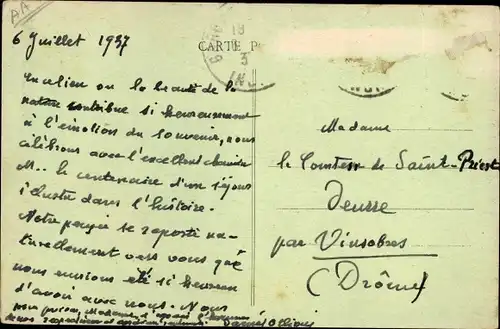 6 Juillet 1937
CARTE P
En ce lieu où la beauté de la
nature contribue si heureusement
à l'émotion du souvenir, nous
célébrons avec l'excellent
M.. le centenaire d'un séjour
illustre dans l'histoire.
Notre pensée se reporte na-
turellement vers vous que
nous eussions été si heureux
d'avoir avec nous. Nous
vous prions, Madame, d'agréer l'hommage
de nos
Daniel Ollivier
Madame
la Comtesse de Saint-Priest
par Vinsobres
(Drôme)